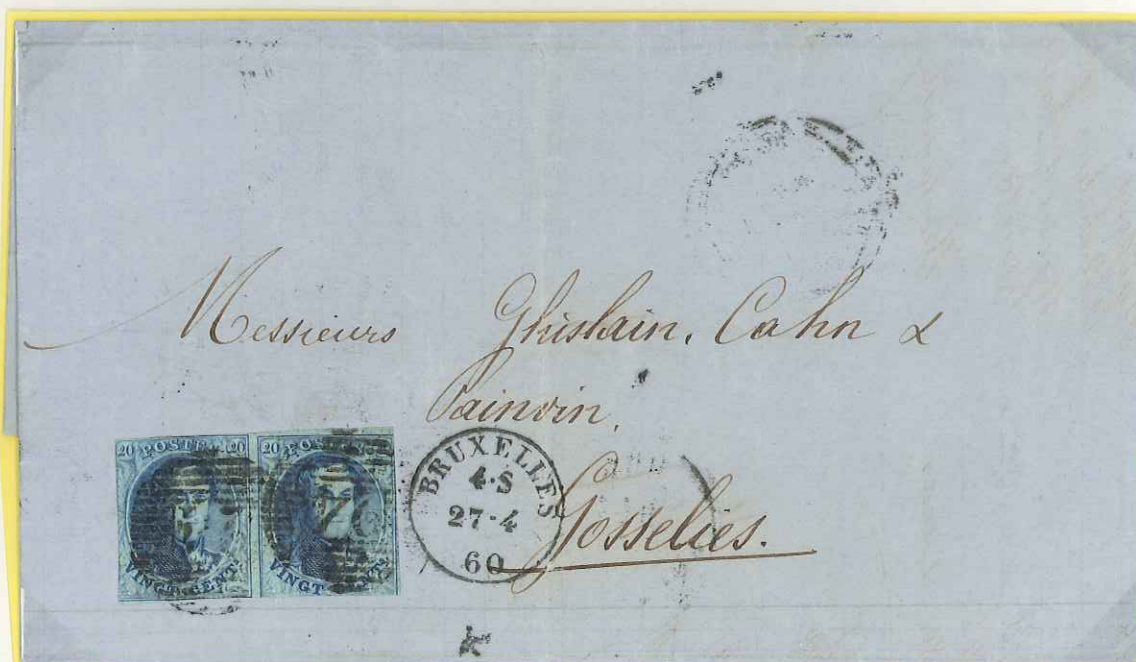 Messieurs Ghislain, Cahn &
Painvin,
Gosselies.
20 POSTES 20
VINGT CENT.
20 POSTES
VINGT
BRUXELLES
4·S
27-4
60